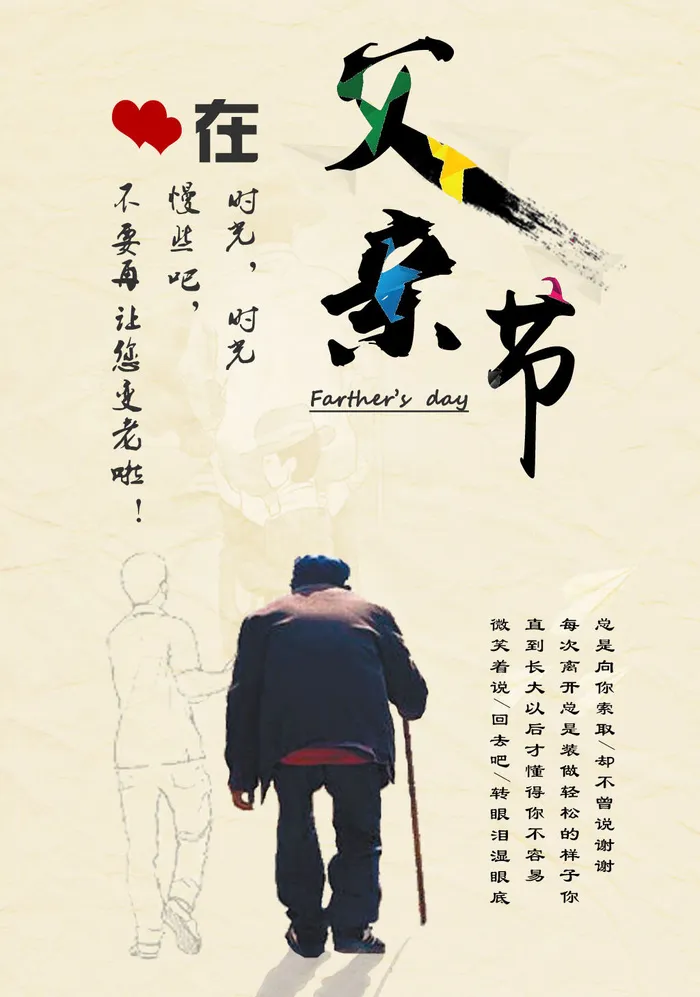 在
父亲节
Farther's day
时光，时光
慢些吧，
不要再让您变老啦！
总是向你索取/却不曾说谢谢
每次离开总是装做轻松的样子你
直到长大以后才懂得你不容易
微笑着说/回去吧/转眼泪湿眼底